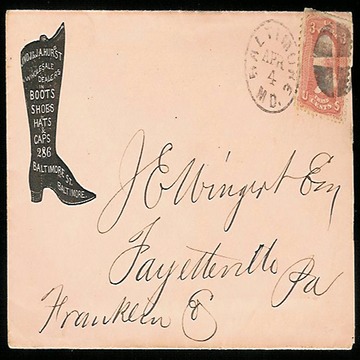 JNO. E. & J.A. HURST
WHOLESALE
DEALERS
IN
BOOTS
SHOES
HATS
&
CAPS
286
BALTIMORE ST.
BALTIMORE.
BALTIMORE
APR
4
MD.
3 3
U S
THREE
CENTS
J E Wingert Esq
Fayetteville
Pa
Franklin C